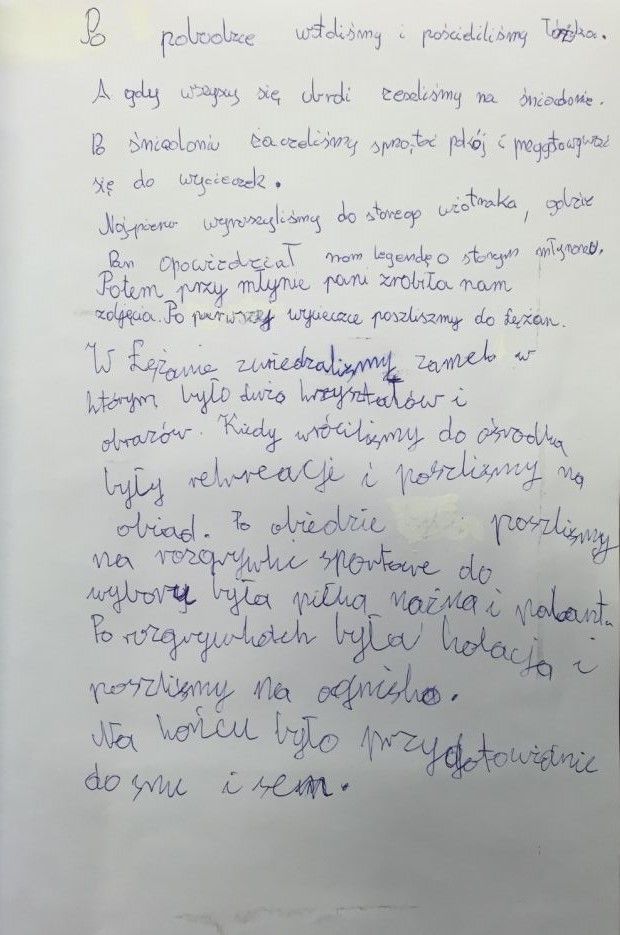 Po pobudce wstaliśmy i pościeliliśmy łóżka.
A gdy wszyscy się ubrali zeszliśmy na śniadanie.
Po śniadaniu zaczeliśmy sprzątać pokój i przygotowywać
się do wycieczek.
Najpierw wyruszyliśmy do starego wiatraka, gdzie
Pan opowiedział nam legendę o starym młynarzu.
Potem przy młynie pani zrobiła nam
zdjęcia. Po pierwszej wycieczce poszliszmy do Łężan.
W Łężanie zwiedzaliszmy zamek w
którym było dużo krzyształów i
obrazów. Kiedy wróciliszmy do ośrodka
były rekreacje i poszliszmy na
obiad. Po obiedzie poszliszmy
na rozgrywki sportowe do
wyboru była piłka nażna i palant.
Po rozgrywkach była kolacja i
poszliszmy na ognisko.
Na końcu było przygotowanie
do snu i sen.